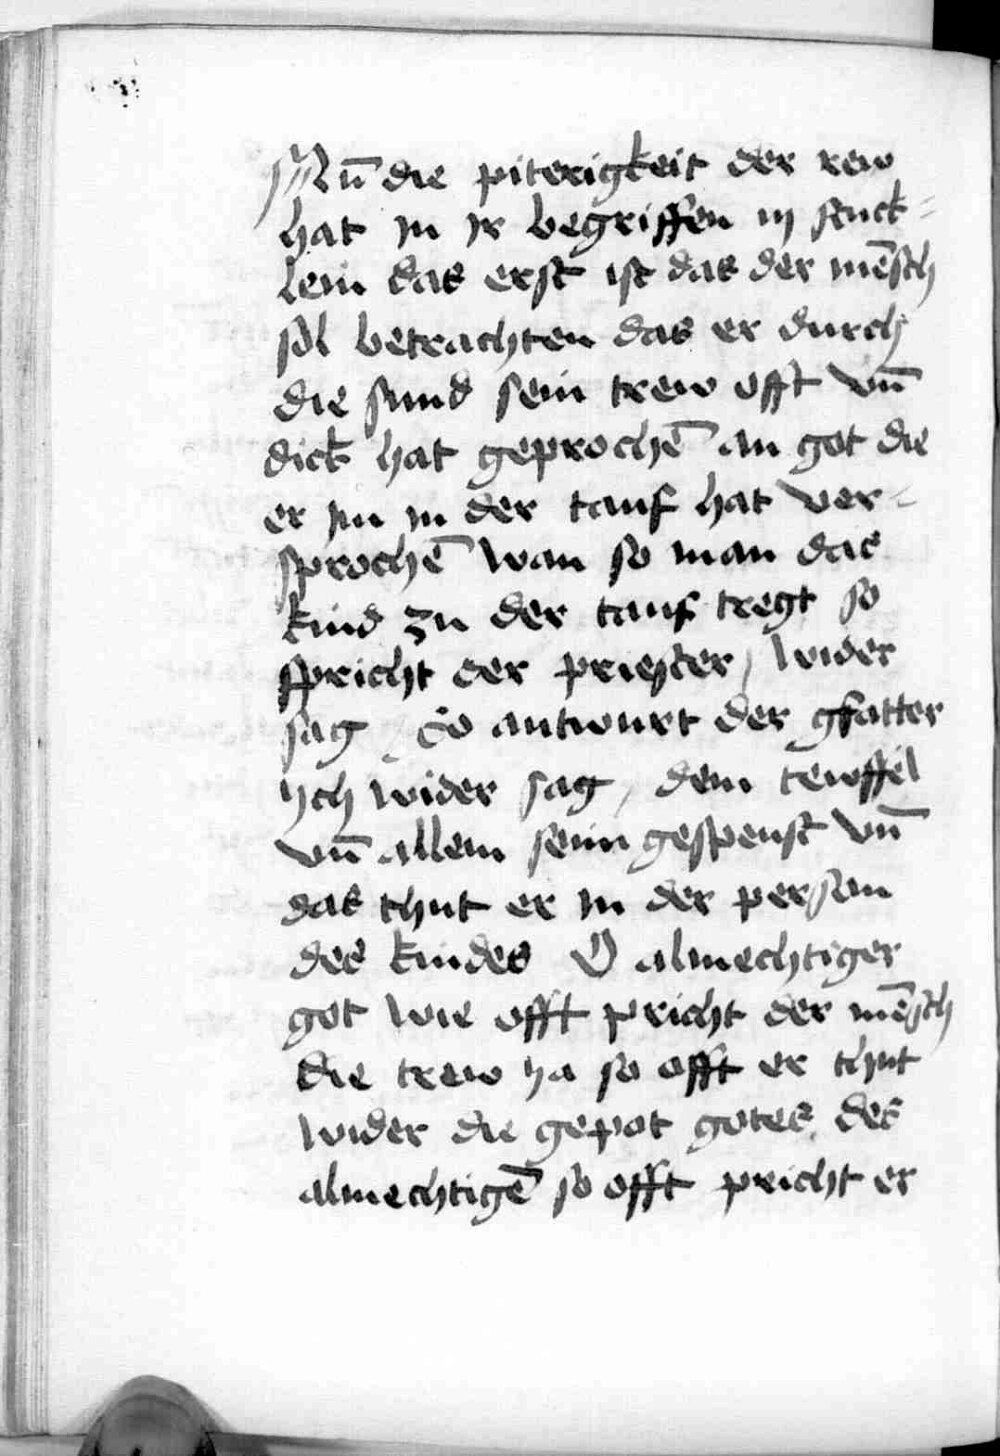 Nū die piterigkeit der rew
hat jn jr begriffen iij stuck=
lein das erst ist das der mēsch
sol betrachten das er durch
die sund sein trew offt vn̄
dick hat geprochē an got die
er jm jn der tauf hat ver=
sprochē wan so man das
kind zu der tauf tregt so
spricht der priester / wider
sag / So antwurt der gfatter
ych wider sag / dem tewffel
vn̄ allem seim gespenst vn̄
das thut er jn der person
des kindes O almechtiger
got wie offt pricht der mēsch
die trew ya so offt er thut
wider die gepot gotes des
almechtigē so offt pricht er